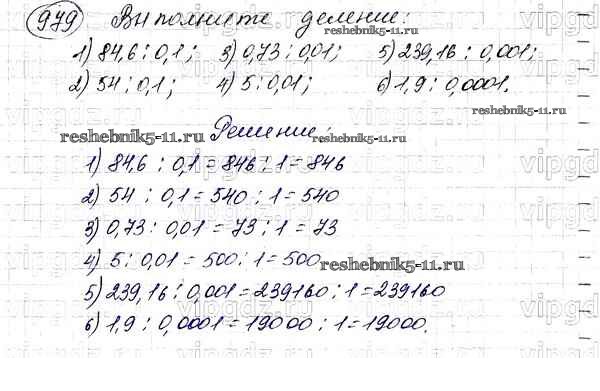 979 Выполните деление:
1) 84,6 : 0,1; 3) 0,73 : 0,01; 5) 239,16 : 0,001;
2) 54 : 0,1; 4) 5 : 0,01; 6) 1,9 : 0,0001.
reshebnik5-11.ru
reshebnik5-11.ru Решение: reshebnik5-11.ru
1) 84,6 : 0,1 = 846 : 1 = 846
2) 54 : 0,1 = 540 : 1 = 540
3) 0,73 : 0,01 = 73 : 1 = 73
4) 5 : 0,01 = 500 : 1 = 500 reshebnik5-11.ru
5) 239,16 : 0,001 = 239160 : 1 = 239160
6) 1,9 : 0,0001 = 19000 : 1 = 19000.